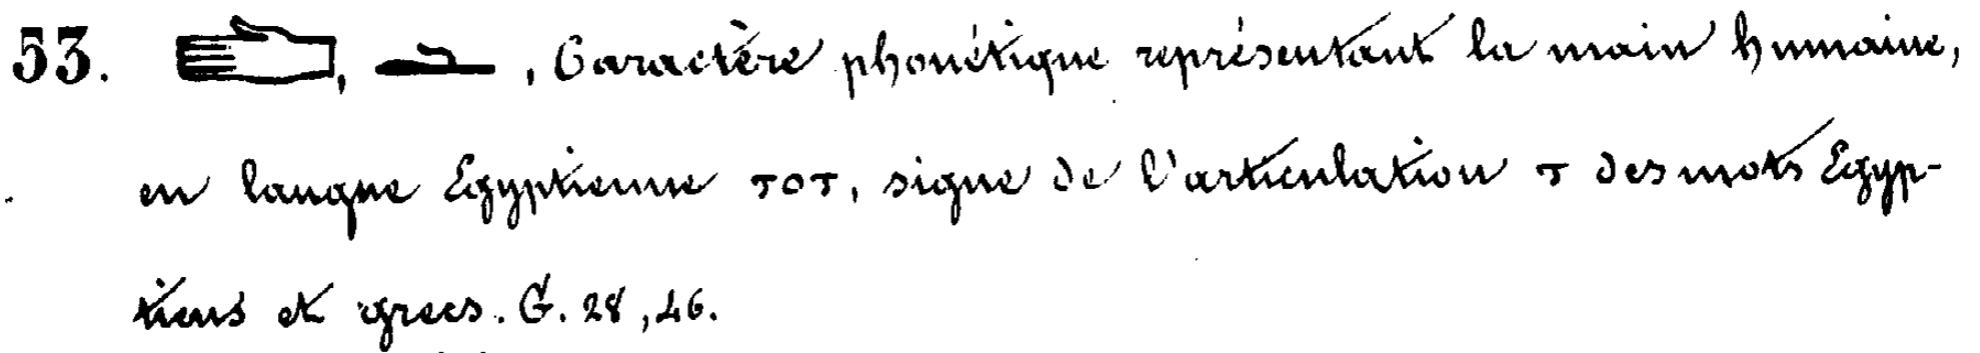 53. 𓂧, 𓂧, Caractère phonétique représentant la main humaine,
en langue Egyptienne ⲧⲟⲧ, signe de l'articulation ⲧ des mots Egyp-
tiens et grecs. G. 28, 46.